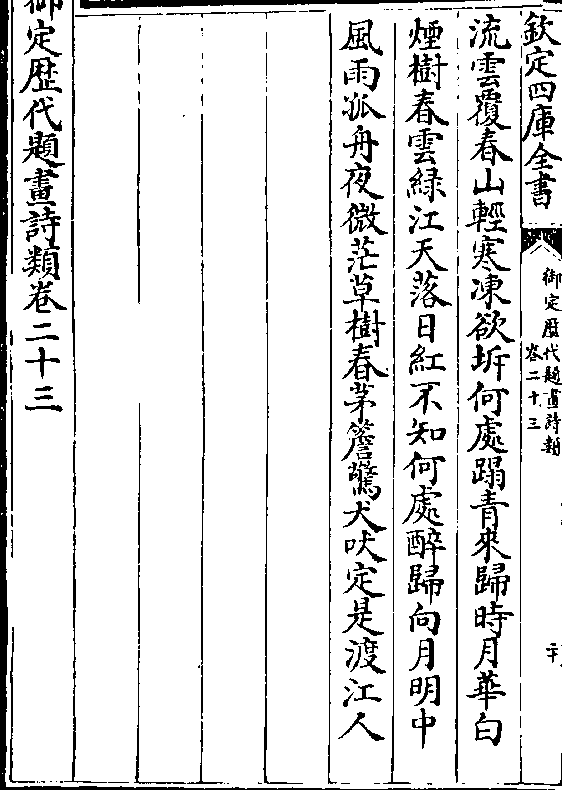 欽定四庫全書
御定歴代題畫詩類
卷二十三
流雲覆春山輕寒凍欲坼何處蹋青來歸時月華白
煙樹春雲緑江天落日紅不知何處醉歸向月明中
風雨孤舟夜微茫草樹春茅簷驚犬吠定是渡江人
御定歴代題畫詩類卷二十三